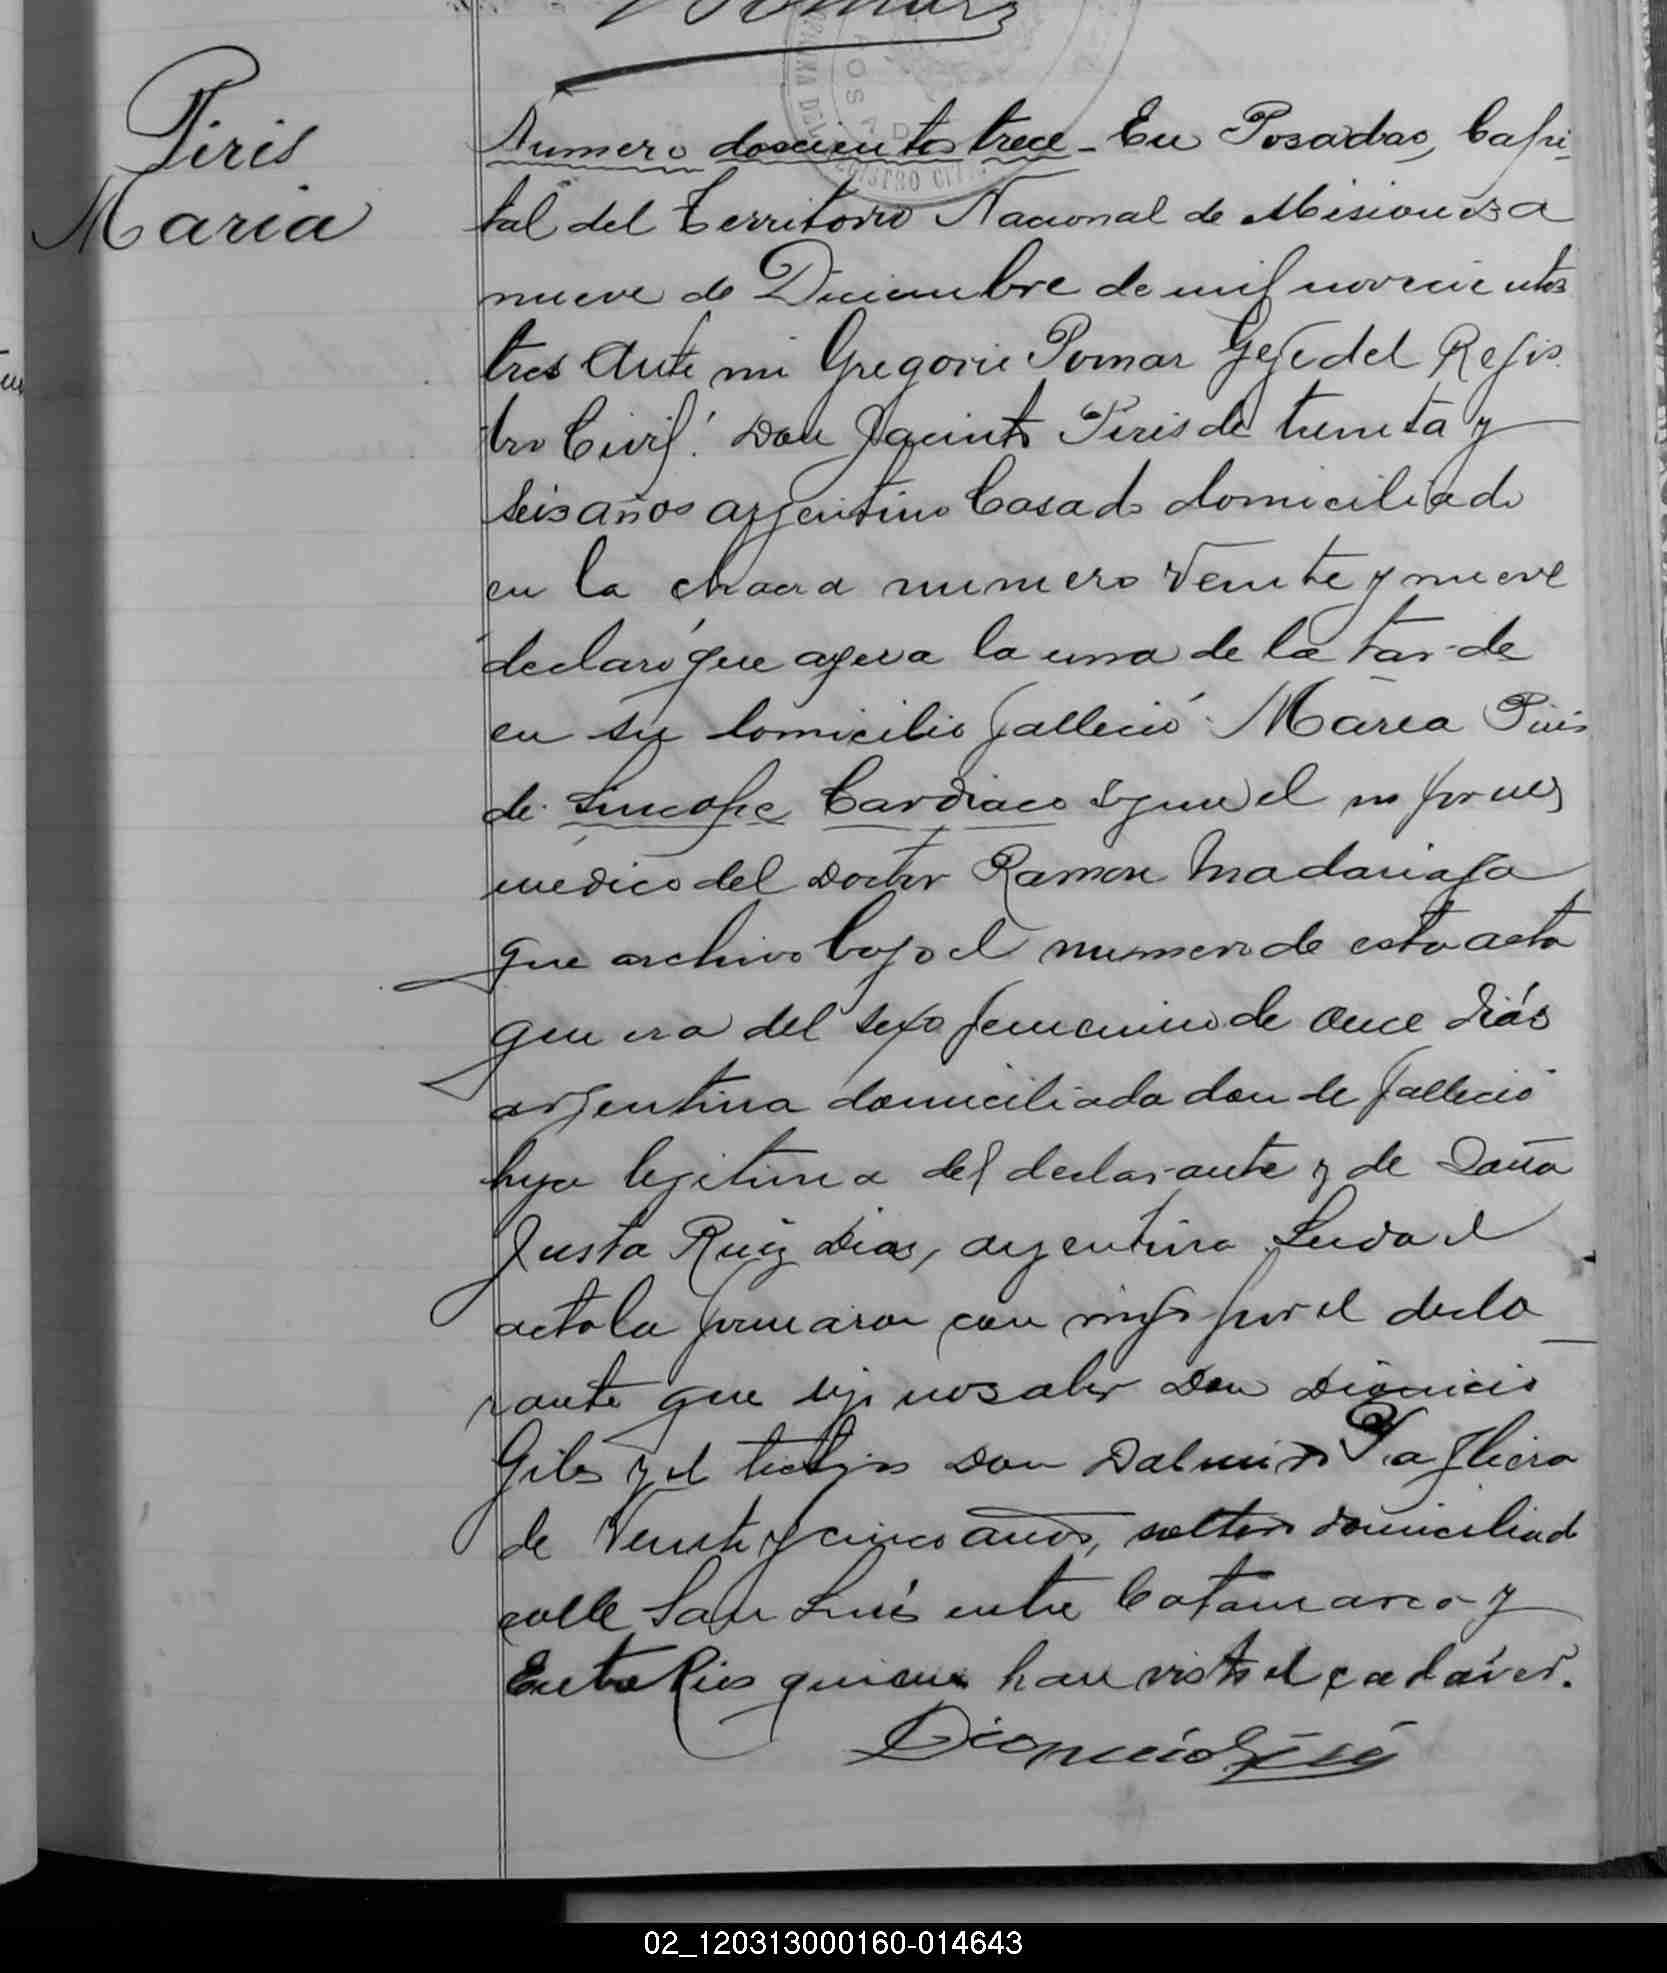 Pomar
Piris
Maria
Numero doscientos trece - En Posadas, Capi-
tal del Territorio Nacional de Misiones a
nueve de Diciembre de mil novecientos
tres Ante mi Gregorio Pomar Gefe del Regis
tro Civil: Don Jacinto Piris de treinta y
seis años argentino Casado domiciliado
en la chacra numero Veinte y nueve
declaró que ayer a la una de la tarde
en su domicilio falleció Maria Piris
de Sincope Cardiaco segun el informe
medico del Doctor Ramon Madariaga
que archivo bajo el numero de esta acta
que era del sexo femenino de once dias
argentina domiciliada donde falleció
hija legitima del declarante y de Doña
Justa Ruiz Dias, argentina Leida el
acta la firmaron con migo por el decla
rante que dijo no saber Don Dionicio
Giles y el testigo Don Dalmiro
de Veinte y cinco años, soltero domiciliado
calle San Luis entre Catamarca y
Entre Rios quienes han visto el cadáver.
Dionicio
02_120313000160-014643